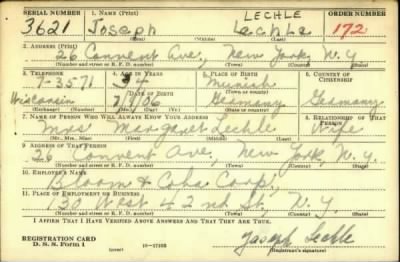 SERIAL NUMBER 1. NAME (Print) ORDER NUMBER
LECHLE
3621 Joseph Lechle 172
(First) (Middle) (Last)
2. ADDRESS (Print)
26 Convent Ave., New York, N.Y.
(Number and street or R. F. D. number) (Town) (County) (State)
3. TELEPHONE 4. AGE IN YEARS 5. PLACE OF BIRTH 6. COUNTRY OF CITIZENSHIP
7-3571 34 Munich
DATE OF BIRTH
Wisconsin 7/1/06 Germany Germany
(Exchange) (Number) (Mo.) (Day) (Yr.) (State or country)
7. NAME OF PERSON WHO WILL ALWAYS KNOW YOUR ADDRESS 8. RELATIONSHIP OF THAT PERSON
Mrs. Margaret Lechle Wife
(Mr., Mrs., Miss) (First) (Middle) (Last)
9. ADDRESS OF THAT PERSON
26 Convent Ave., New York, N.Y.
(Number and street or R. F. D. number) (Town) (County) (State)
10. EMPLOYER'S NAME
Bloom & Corp.,
11. PLACE OF EMPLOYMENT OR BUSINESS
130 West 42nd St. N.Y.
(Number and street or R. F. D. number) (Town) (County) (State)
I AFFIRM THAT I HAVE VERIFIED ABOVE ANSWERS AND THAT THEY ARE TRUE.
REGISTRATION CARD
D. S. S. Form 1 (over) Joseph Lechle
(Registrant's signature)